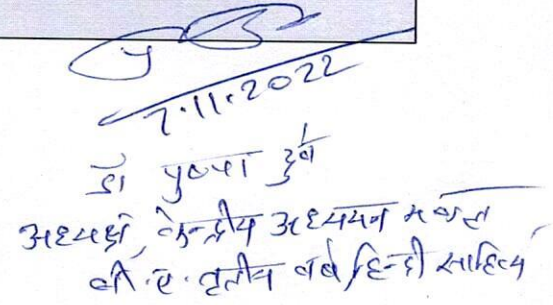 7.11.2022
डॉ पुष्पा दुबे
अध्यक्ष, केन्द्रीय अध्ययन मण्डल
बी.ए. तृतीय वर्ष हिन्दी साहित्य